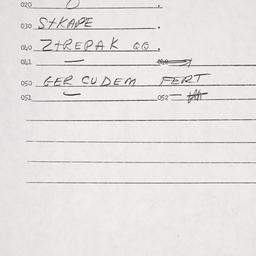 020
030 S+KAPE .
040 Z+REPAK QQ .
041
050 GER CUDEM FERT
051 052